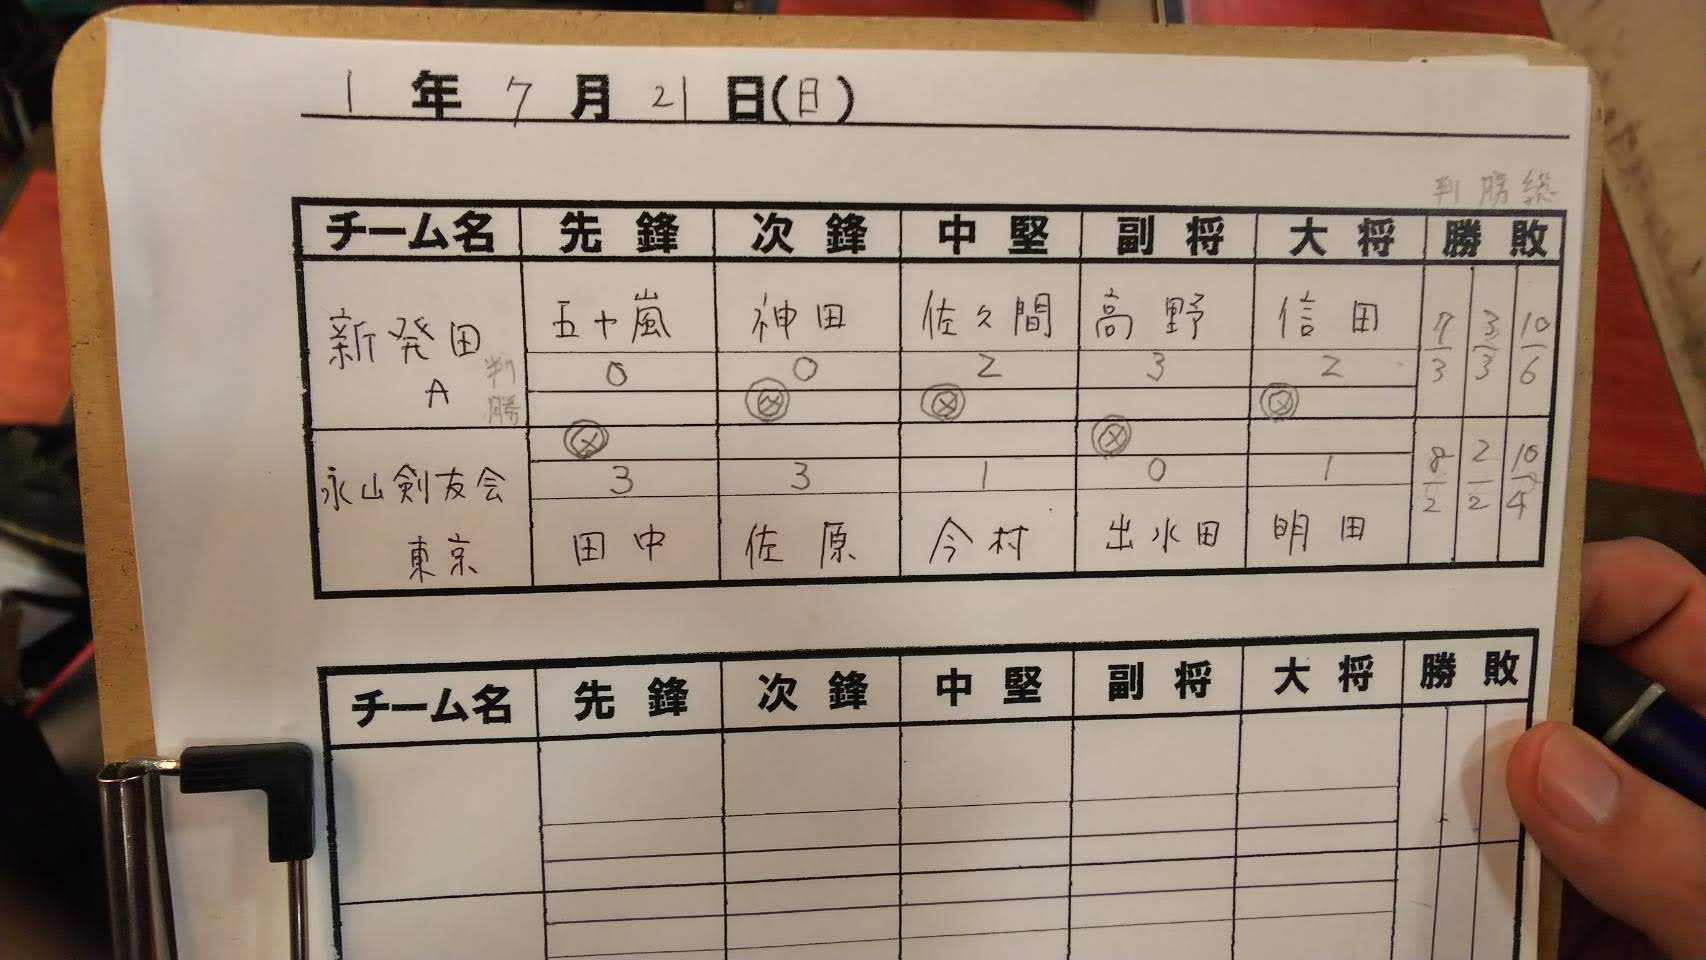 1 年 7 月 21 日(日)
判 勝 総
チーム名 先鋒 次鋒 中堅 副将 大将 勝敗
新発田 A 五十嵐 神田 佐久間 高野 信田
判勝 0 0 2 3 2 7/3 3/3 10/6
3 3 1 0 1 8/2 2/2 10/4
永山剣友会 東京 田中 佐原 今村 出水田 明田
チーム名 先鋒 次鋒 中堅 副将 大将 勝敗